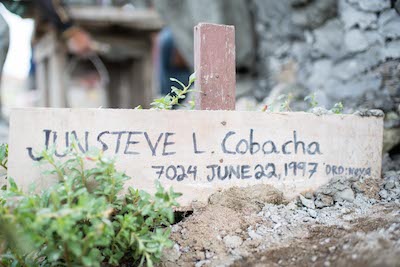 JUN STEVE L. Cobacha
7024 JUNE 22, 1997